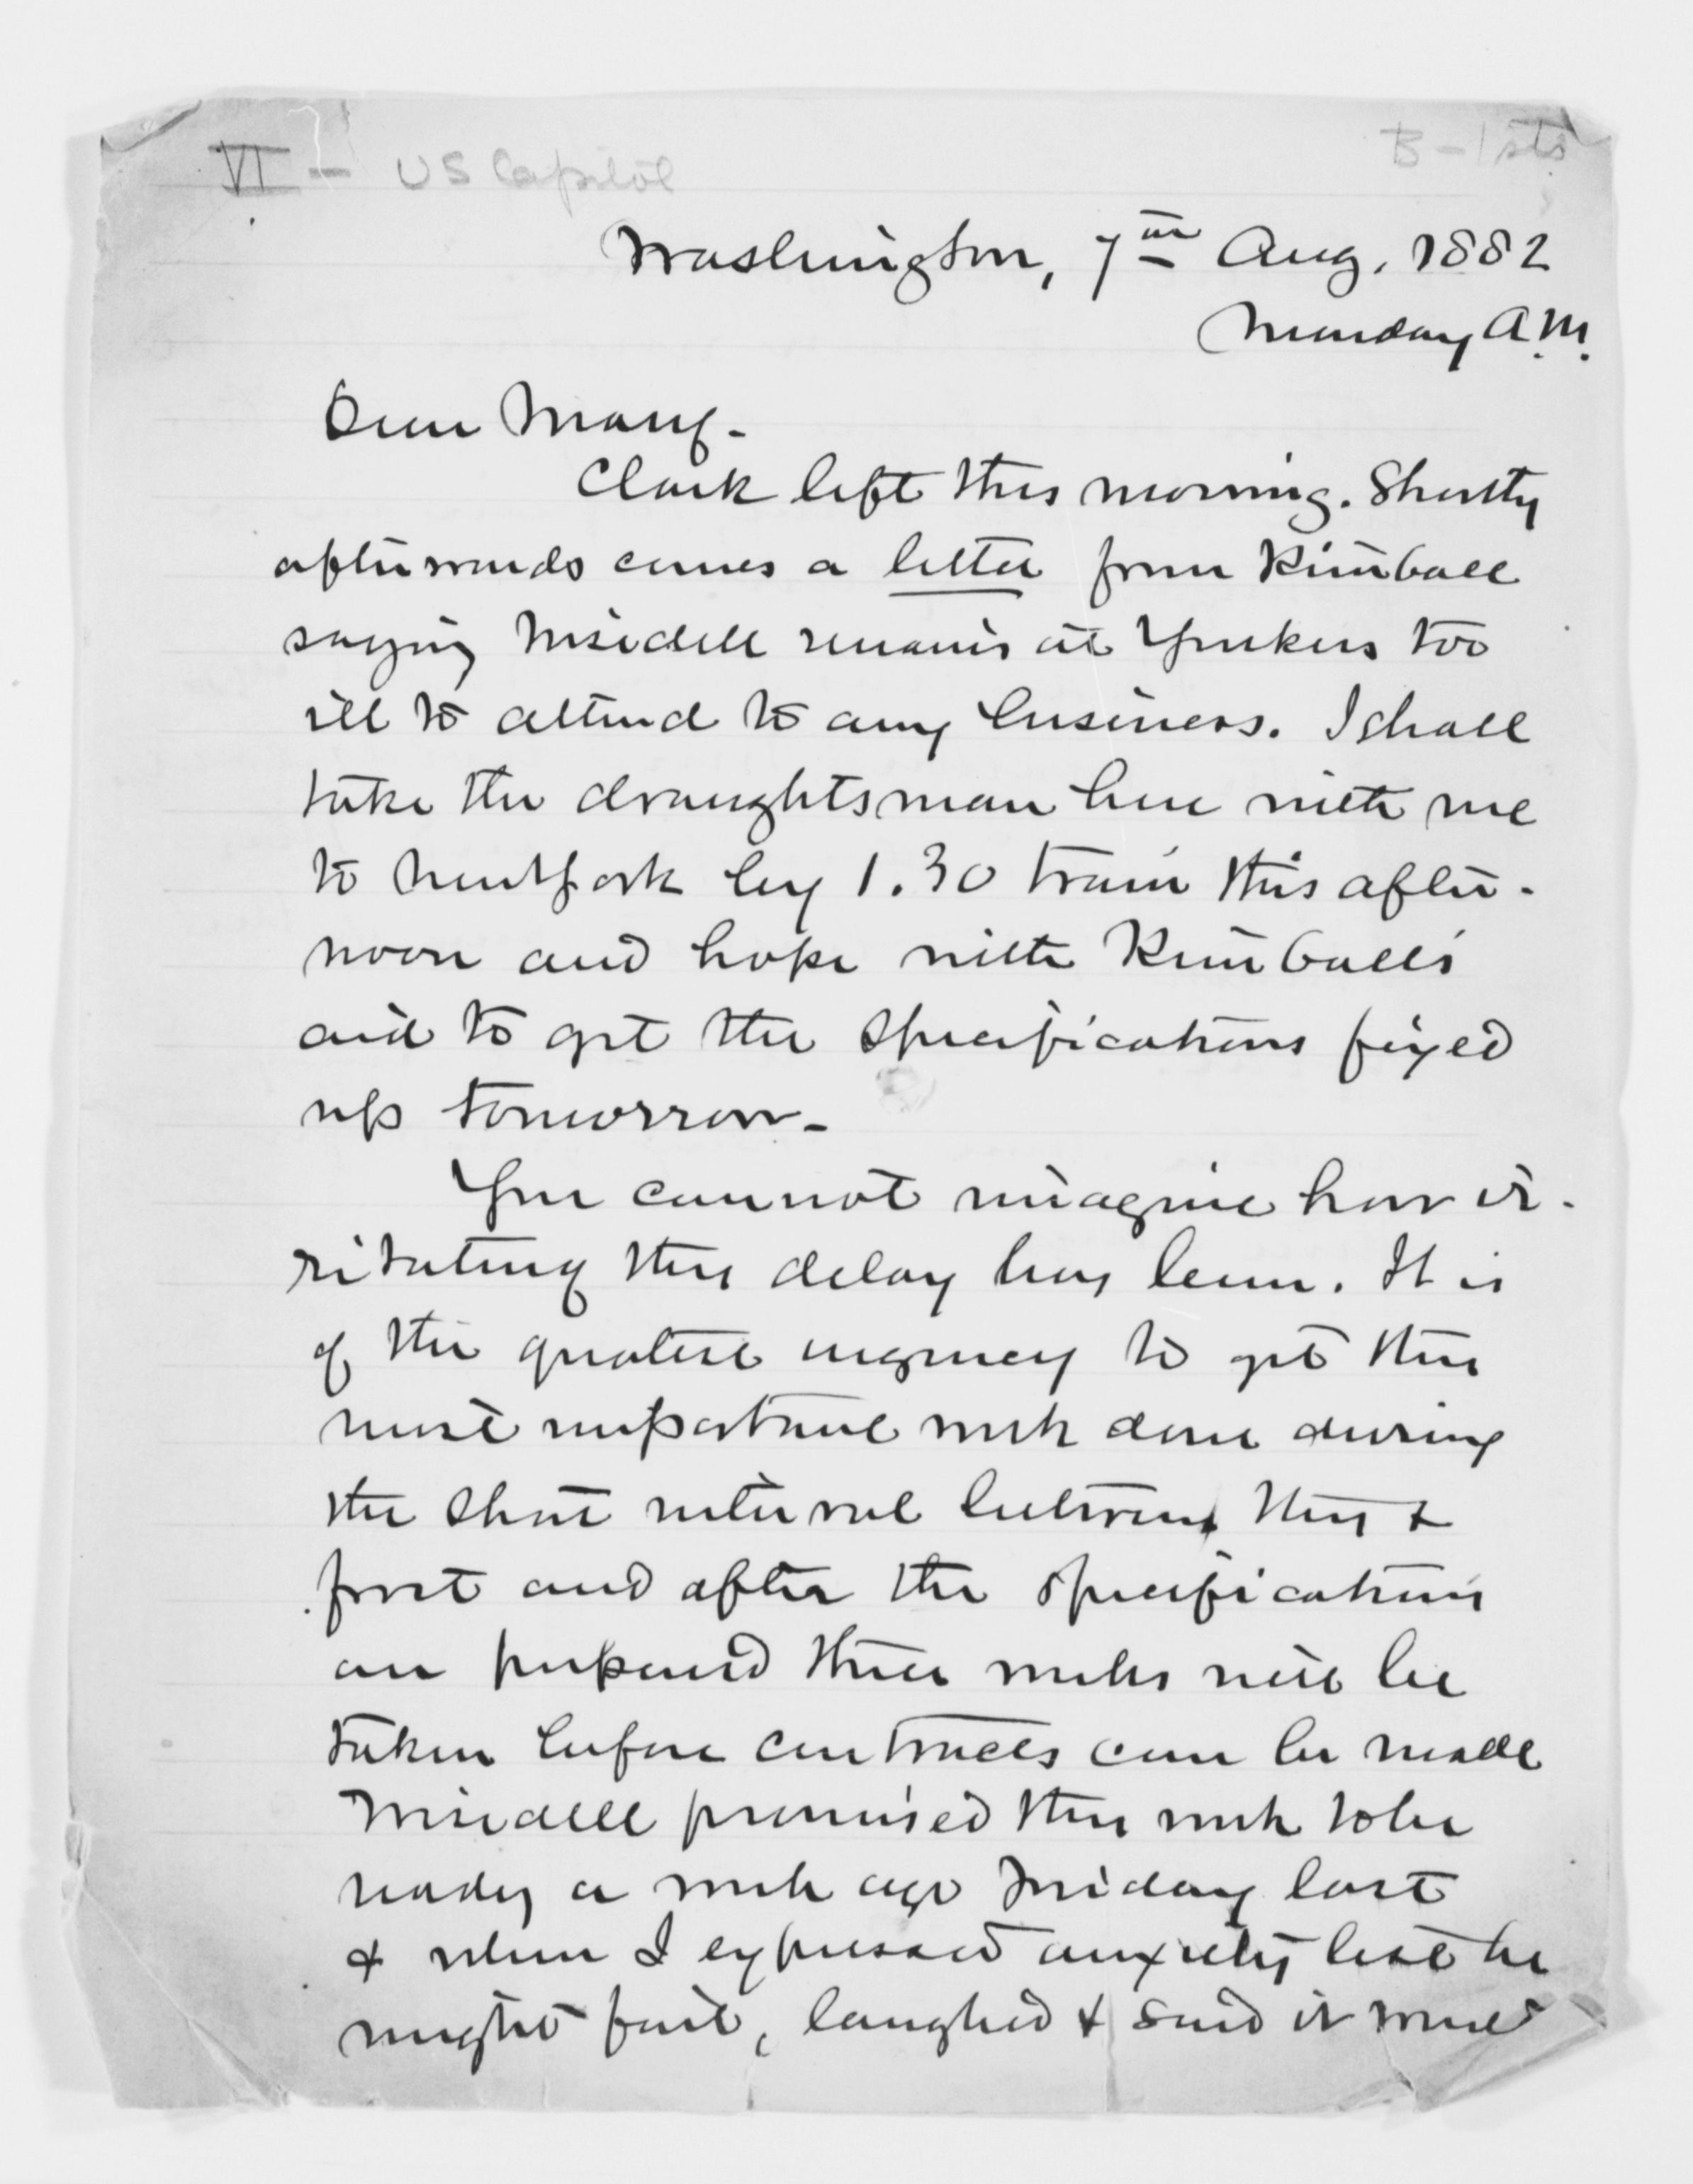 VI - US Capitol
B - 1sts
Washington, 7th Aug. 1882
Monday A.M.
Dear Mary -
Clark left this morning. Shortly
afterwards comes a letter from Kimball
saying Wisedell remains at Yonkers too
ill to attend to any business. I shall
take the draughtsman here with me
to New York by 1.30 train this after-
noon and hope with Kimball's
aid to get the specifications fixed
up tomorrow -
You cannot imagine how ir-
ritating this delay has been. It is
of the greatest urgency to get this
most important work done during
the short interval between this &
frost and after the specifications
are prepared three weeks will be
taken before contracts can be made
Wisedell promised this work to be
ready a week ago Friday last
& when I expressed anxiety lest he
might fail, laughed & said it would